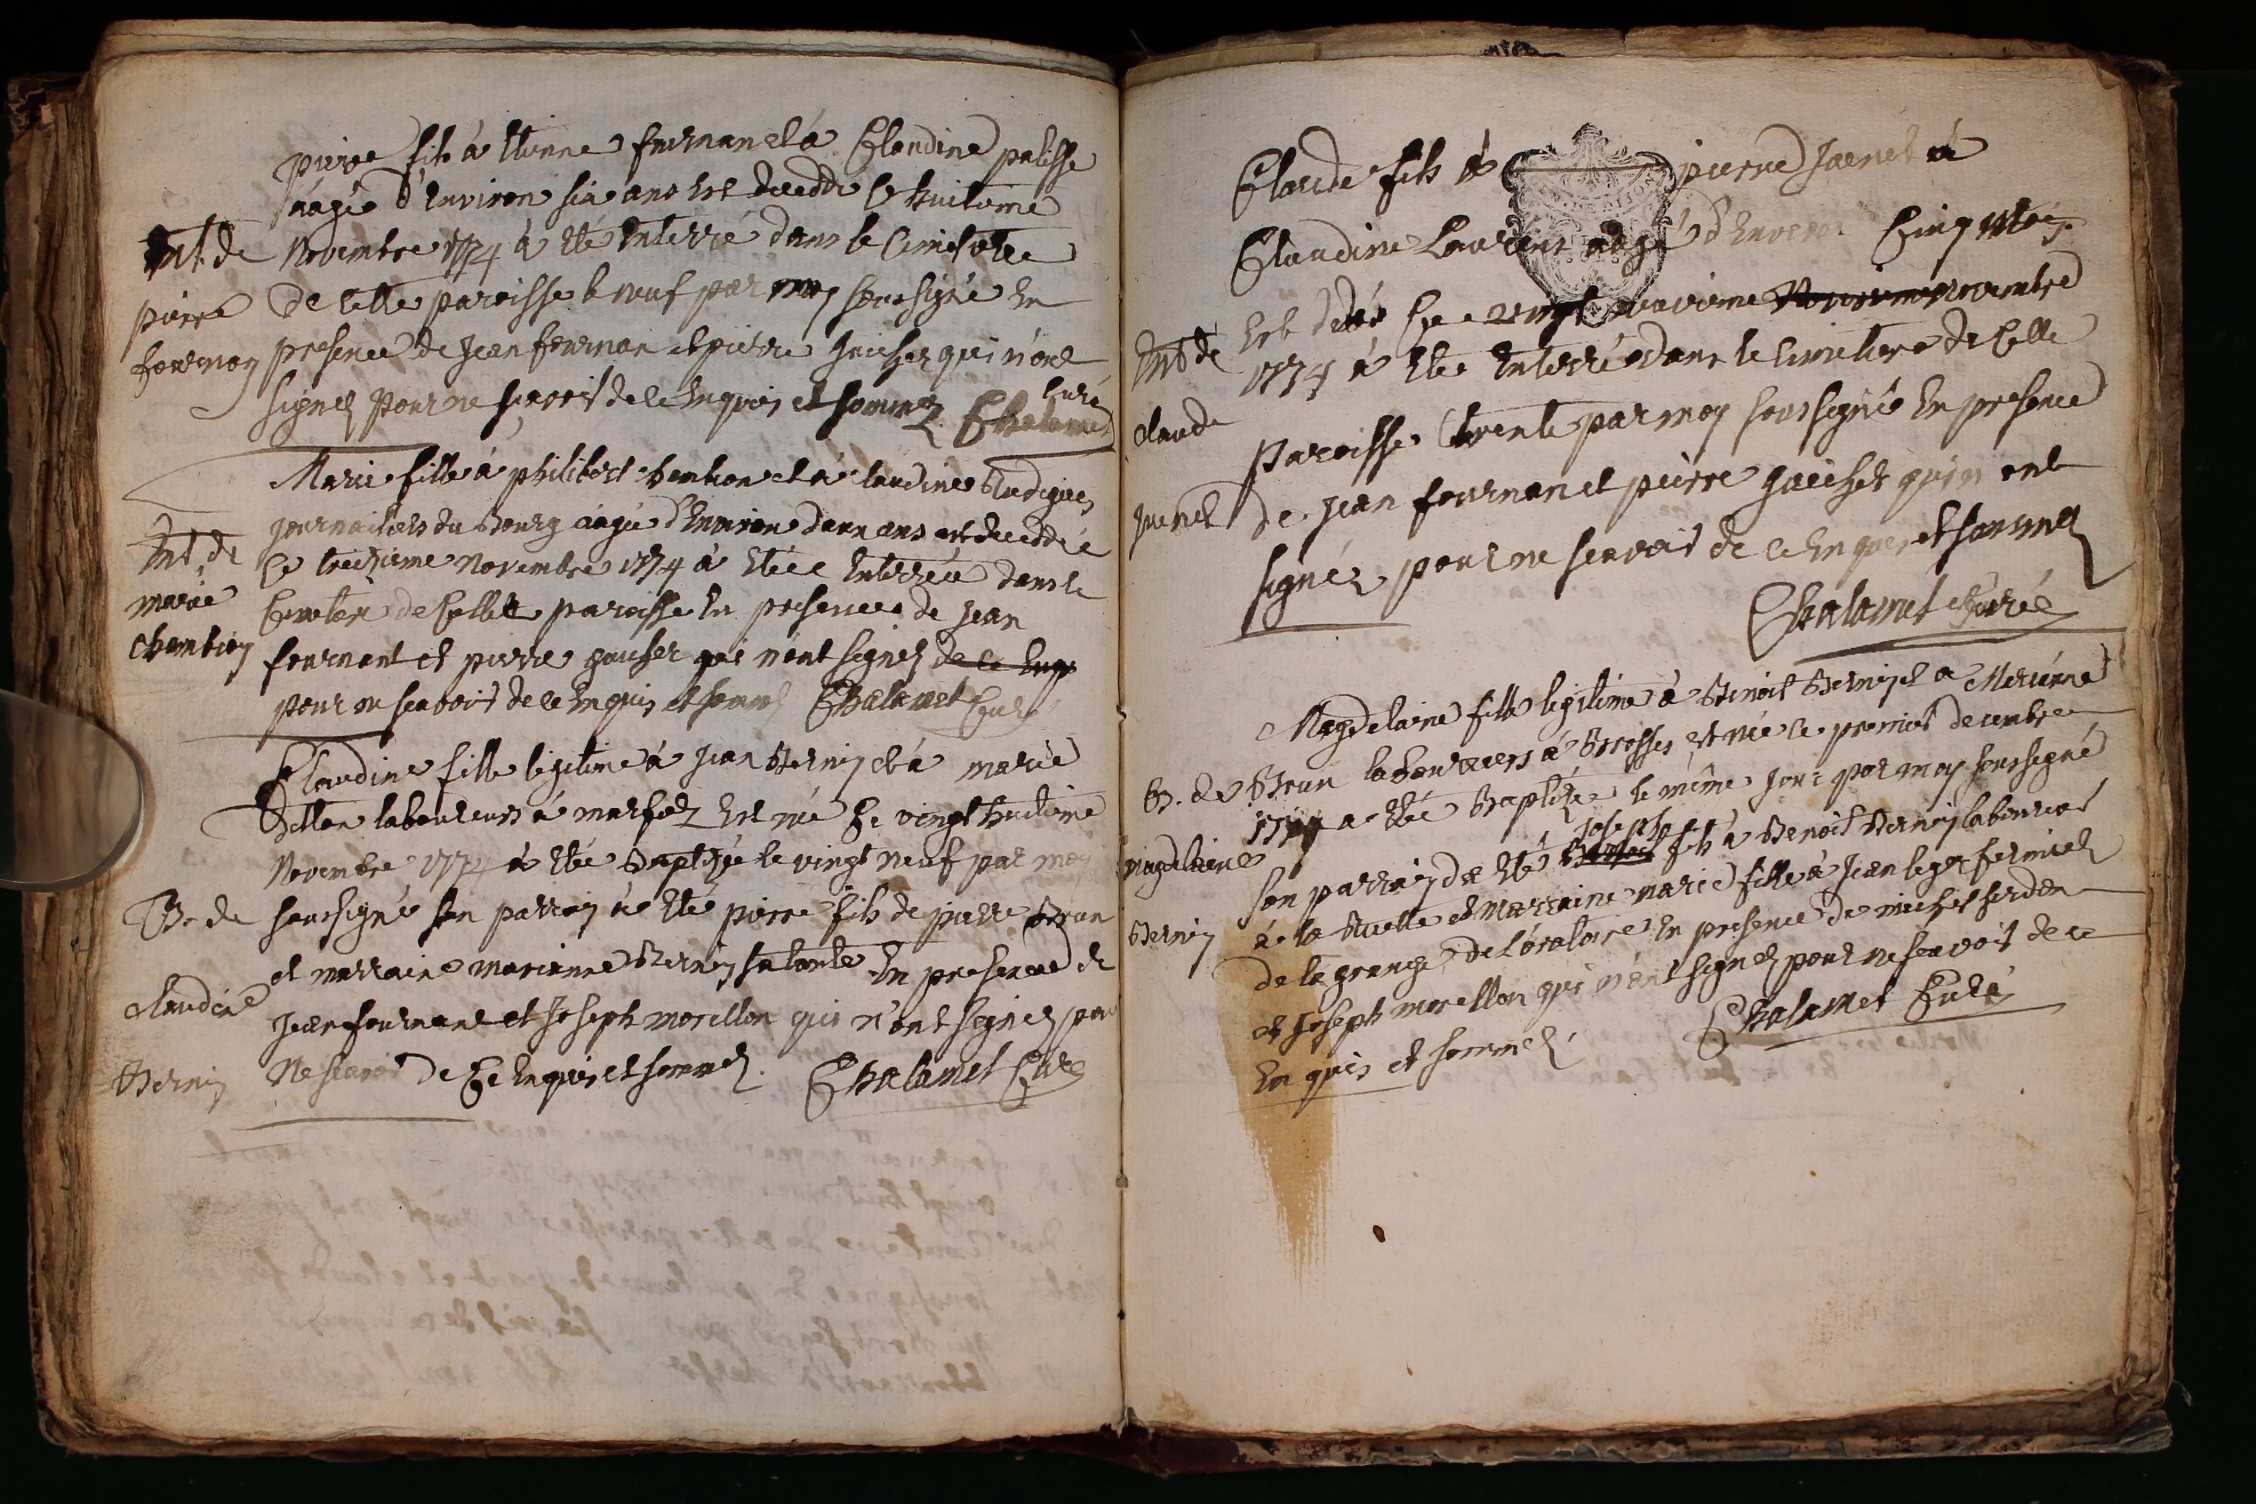 pierre fils à Etienne fournan et à Claudine palisse
âagé d'Environ six ans Est decedé le huitieme
Novembre 1774 à Eté Enterré dans le Cimetiere
de Cette paroisse le neuf par moy soussigné En
presence de Jean fournan et pierre gaucher qui n'ont
signez pour ne scavoir de ce Enquis et sommez Chalamet
Curé
Ent. de
pierre
fournon
Marie fille à philibert chambon et à claudine
journaliers du Bourg âagée d'Environ deux ans est decedée
le treizieme Novembre 1774 à Etée Enterrée dans le
Cimetiere de Cette paroisse En presence de Jean
fournant et pierre gaucher qui n'ont signez de ce Enqs
pour ne scavoir de ce Enquis et sommez Chalamet Curé
Ent. de
marie
chambion
Claudine fille legitime à Jean Bernin et à marie
laboureurs à Est née le vingt huitieme
Novembre 1774 à Eté Baptisée le vingt neuf par moy
soussigné son parrain à Eté pierre fils de pierre Brun
et marraine marianne Bernin sa tante En presence de
Jean fournant et Joseph morillon qui n'ont signez pour
Ne scavoir de Ce Enquis et sommez. Chalamet Curé
B. de
claudine
Bernin
Claude fils à pierre Juenet à
Claudine Laurens aagé d'Environ Cinq
Est decedé le vingt neuvieme novembre
1774 à Eté Enterré dans le Cimetiere de Cette
Paroisse trente par moy soussigné En presence
de Jean fournan et pierre gaucher qui n'ont
signéz pour ne scavoir de ce Enquis et sommez
Chalamet Curé
Ent de
claude
Juenet
Magdelaine fille legitime à Benoit Bernin et a Marianne
Brun laboureurs à Brosses est née le premier decembre
1774 a étée Baptizée le même jour par moy soussigné
son parrain a Eté Joseph fils à Benoit Bernin laboureur
à la Ruette et Marraine marie fille à Jean leger fermier
de la grange de L'oratoire En presence de michel
et Joseph morellon qui n'ont signez pour ne scavoir de ce
Enquis et sommez. Chalamet Curé
B. de
magdelaine
Bernin